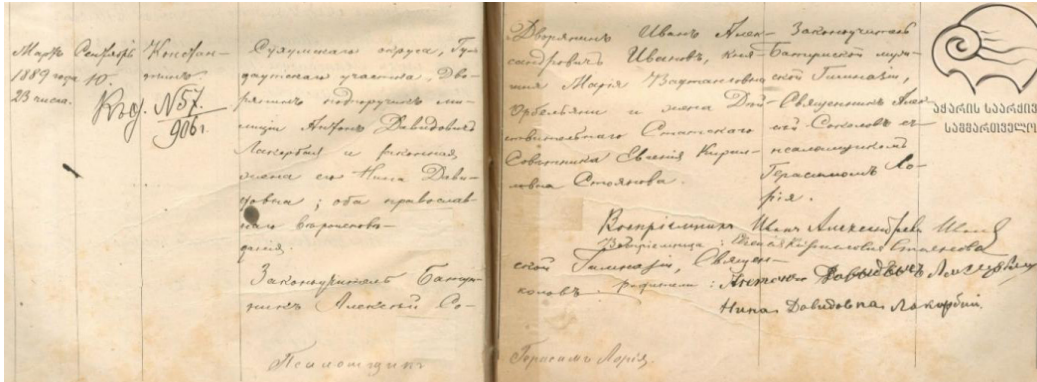 Марта Сентября Констан-
1889 года 10. тинъ
23 числа.
Выд. №57.
906г.
Сухумскаго округа, Гу-
даутскаго участка, Дво-
рянинъ подпоручикъ ми-
лиціи Антонъ Давидовичъ
Лакербая и законная
жена его Нина Дави-
довна; оба православ-
наго вѣроисповѣ-
данія.
Законоучитель Батум-
Алексѣй Со-
Псаломщикъ
Дворянинъ Иванъ Алек-
сандровичъ Ивановъ, кня-
гиня Марія Вахтанговна
Орбельяни и жена Дѣй-
ствительнаго Статскаго
Совѣтника Евгенія Кирил-
ловна Стоянова.
Законоучитель
Батумской муж-
ской Гимназіи,
Священникъ Алек-
сѣй Соколовъ съ
псаломщикомъ
Герасимомъ Ло-
рія.
Воспріемникъ Иванъ Александровъ
Воспріемница: Евгенія Кирилловна Стоянова
ской Гимназіи, Священ-
коловъ. родители: Антонъ Давыдовичъ
Нина Давидовна Лакербай
Герасимъ Лорія.
ᲐᲭᲐᲠᲘᲡ ᲡᲐᲐᲠᲥᲘᲕ
ᲡᲐᲛᲛᲐᲠᲗᲕᲔᲚᲝ